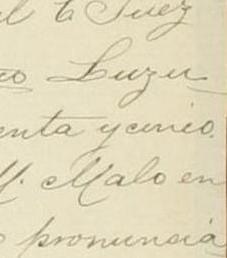 el to Juez
Luzu
enta y cinco.
M. Malo en
pronuncia